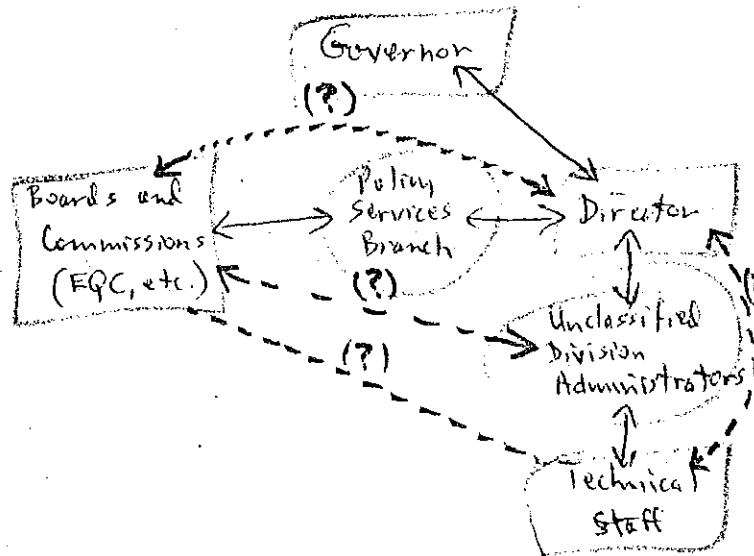 Governor
(?)
Boards and
Commissions
(EQC, etc.)
Policy
Services
Branch
Director
(?)
(?)
Unclassified
Division
Administrators
Technical
Staff